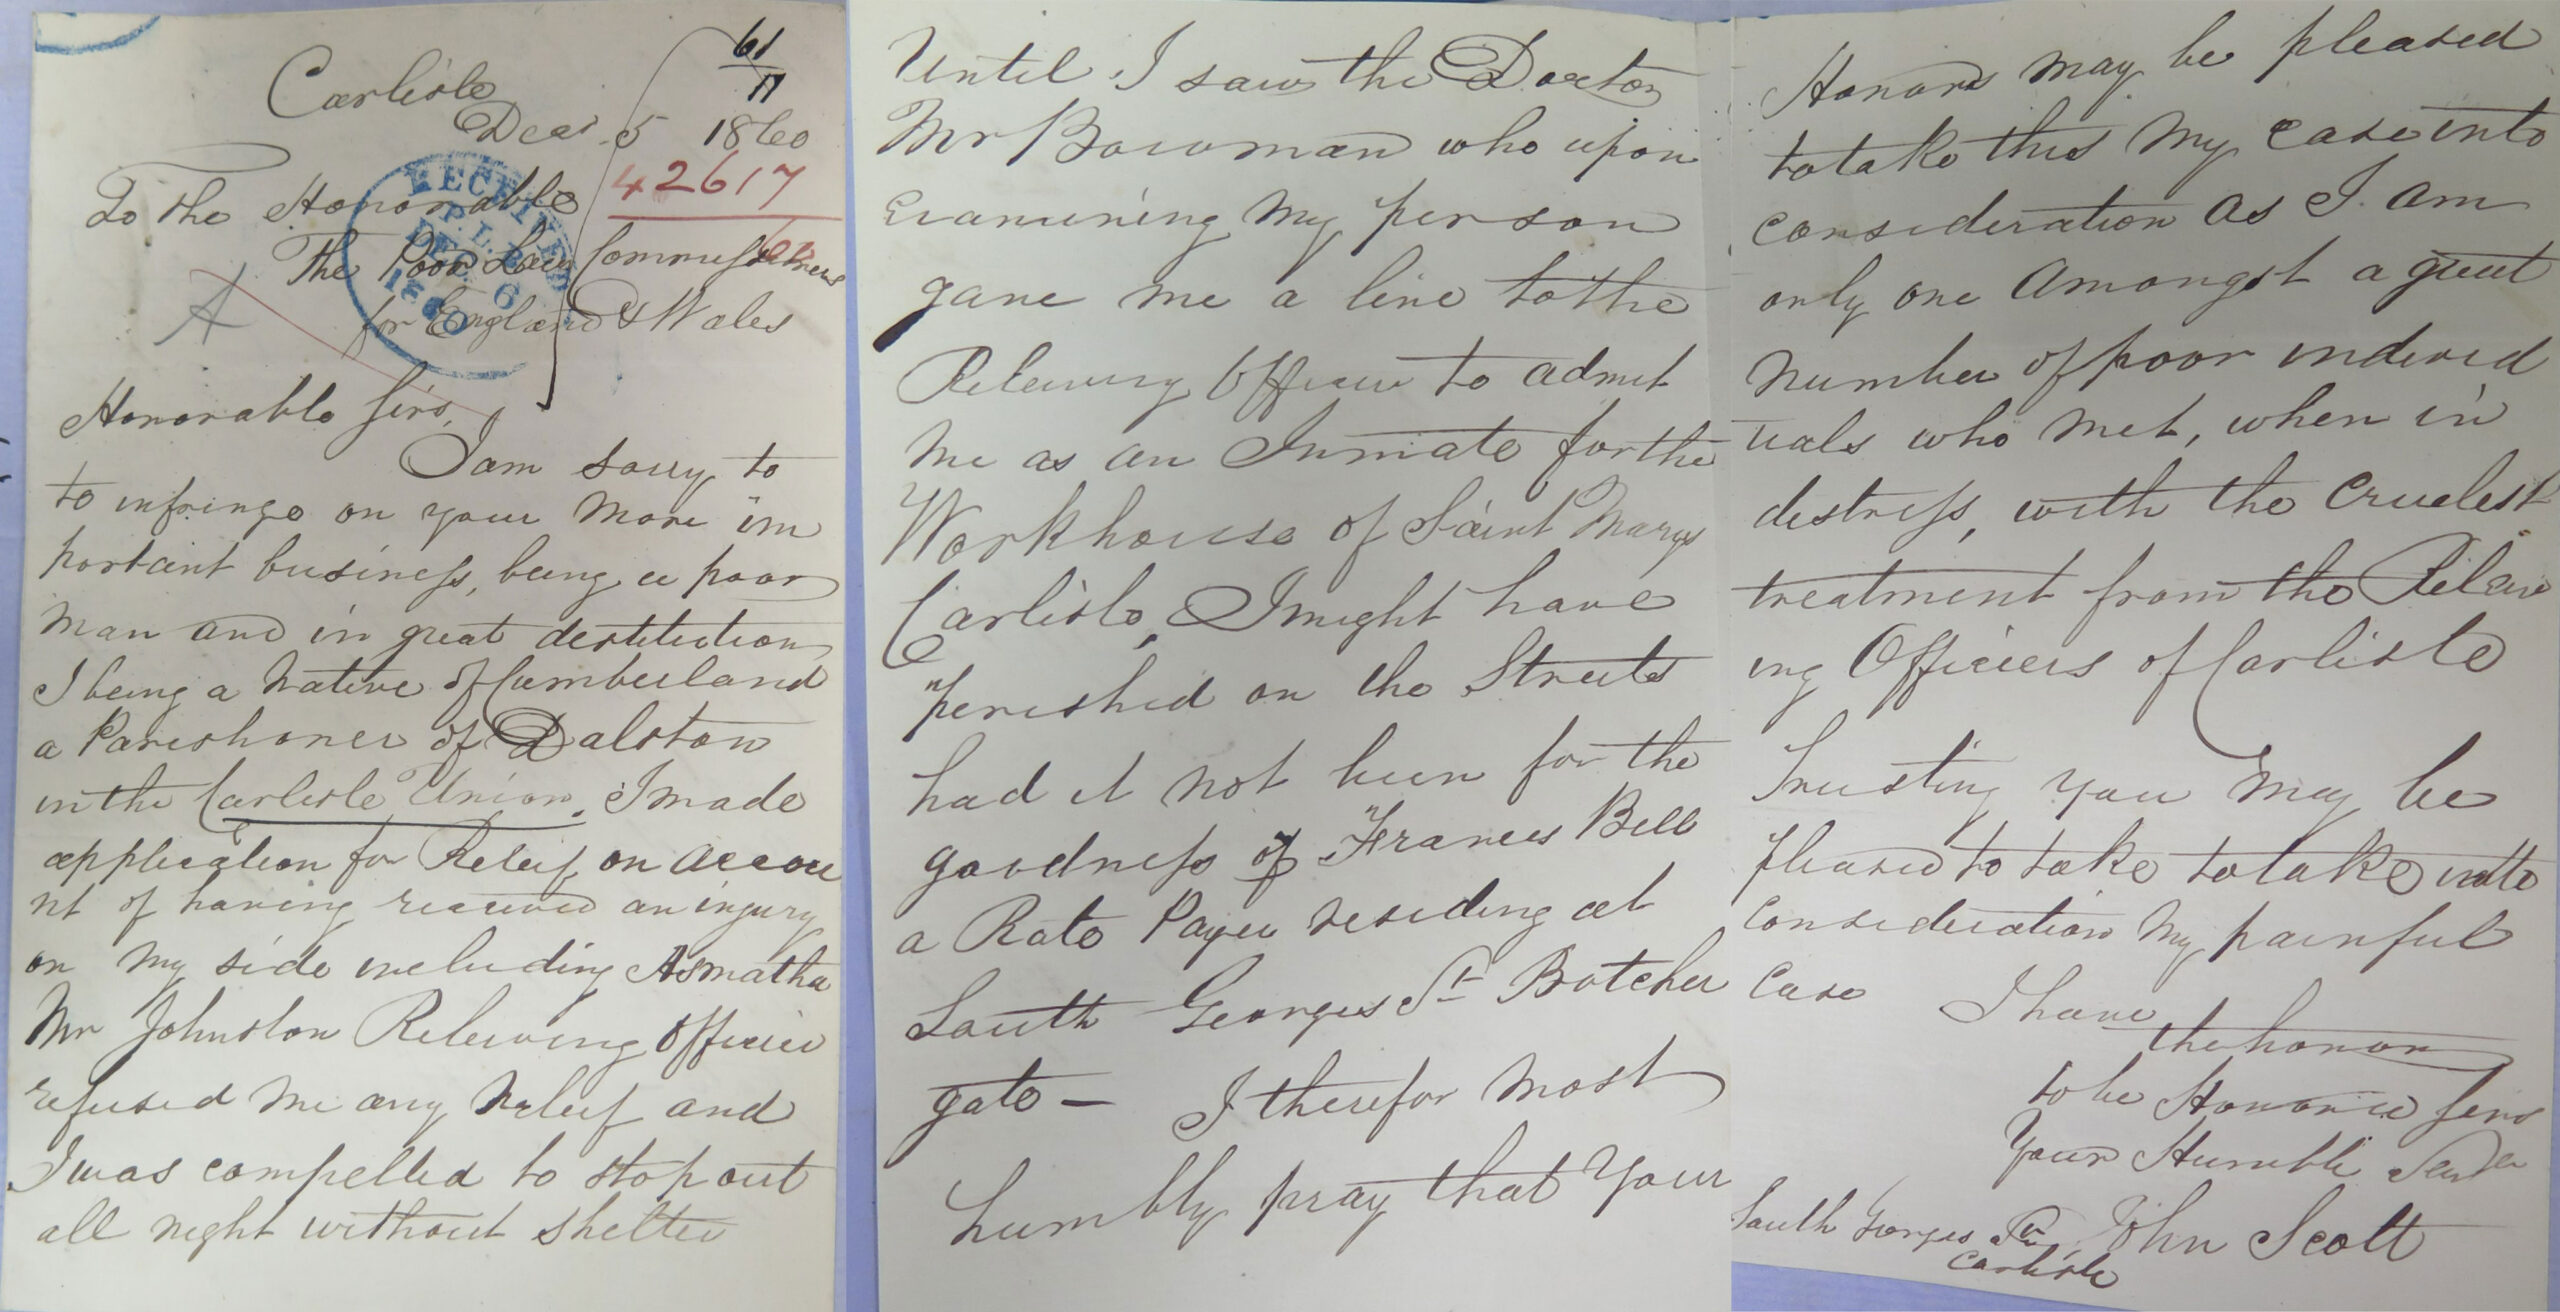 61
17
Carlisle
Decr 5 1860
42617
To the Honorable
The Poor Law Commissioners
for England & Wales
RECEIVED
P.L.B
DEC 6
1860
A
Honorable Sirs,
I am sorry to
to infringe on your more im
portant business, being a poor
man and in great destitution
I being a native of Cumberland
a Parishoner of Dalston
in the Carlisle Union. I made
application for Releif on accou
nt of having received an injury
on my side including Asmatha
Mr Johnston Releiving Officer
refused me any releif and
I was compelled to stop out
all night without shelter
Until I saw the Doctor
Mr Bowman who upon
Examining my person
gave me a line to the
Releiving Officer to admit
me as an Inmate for the
Workhouse of Saint Marys
Carlisle, I might have
perished on the Streets
had it not been for the
goodness of Frances Bell
a Rate Payer residing at
South Georges St Botcher
gate — I therefor most
humbly pray that Your
Honors may be pleased
to take this my case into
consideration as I am
only one amongst a great
number of poor individ
uals who met, when in
distress, with the cruelest
treatment from the Releiv
ing Officers of Carlisle
Trusting you may be
pleased to take to take into
consideration my painful
case I have
the honor
to be Honored Sirs
Your Humble
South Georges St John Scott
Carlisle